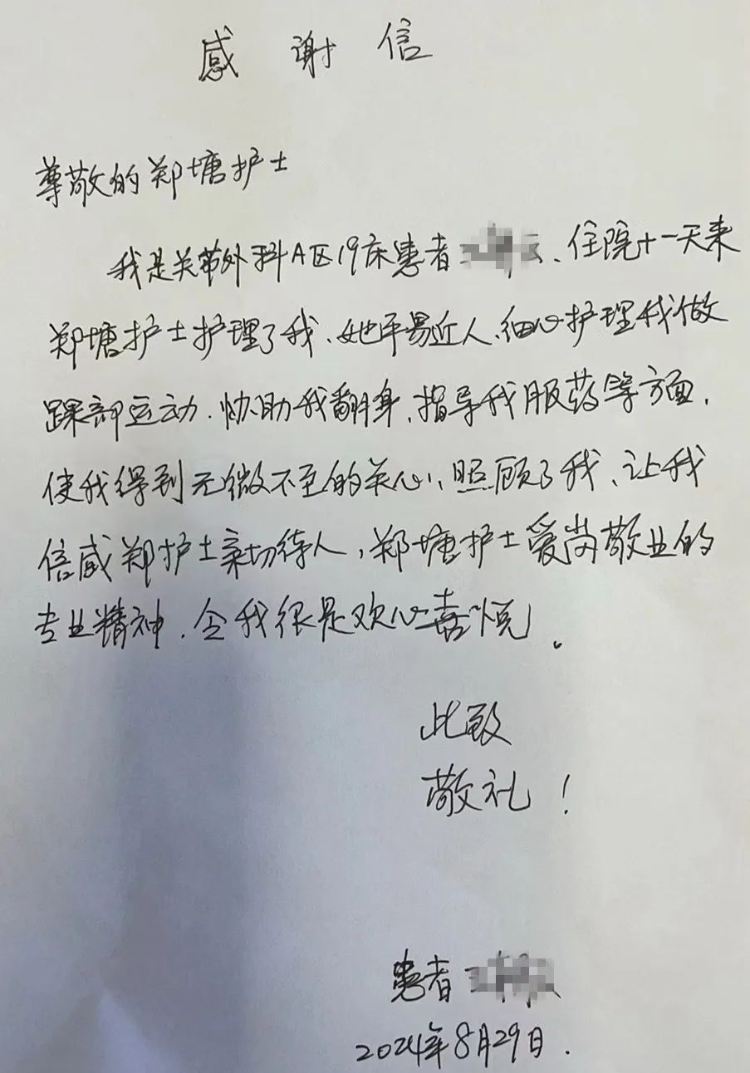 感谢信
尊敬的郑塘护士
我是关节外科A区19床患者、住院十一天来
郑塘护士护理了我、她平易近人、细心护理我做
踝部运动、协助我翻身、指导我服药等方面、
使我得到无微不至的关心、照顾了我、让我
倍感郑护士亲切待人,郑塘护士爱岗敬业的
专业精神、令我很是欢心喜悦。
此致
敬礼!
患者
2024年8月29日.